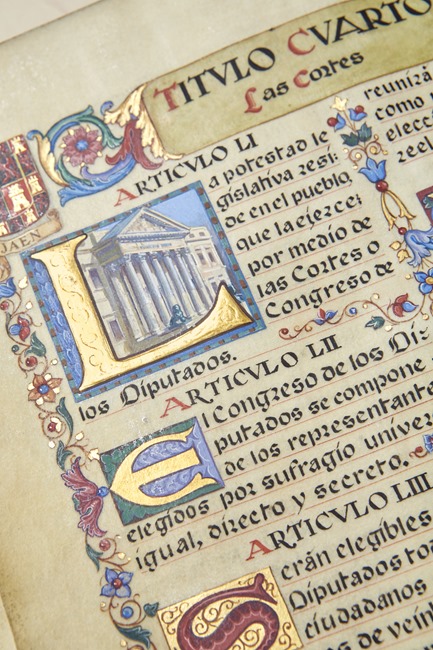 TITVLO CVARTO
Las Cortes
JAEN
ARTICVLO LI
La potestad le
gislativa resi:
de en el pueblo,
que la ejerce:
por medio de
las Cortes o
Congreso de
los Diputados.
ARTICVLO LII
El Congreso de los Di:
putados se compone
de los representante
elegidos por sufragio univer
igual, directo y secreto.
ARTICVLO LIII
Serán elegibles
Diputados tod
ciudadanos
de vein
reunirá
como